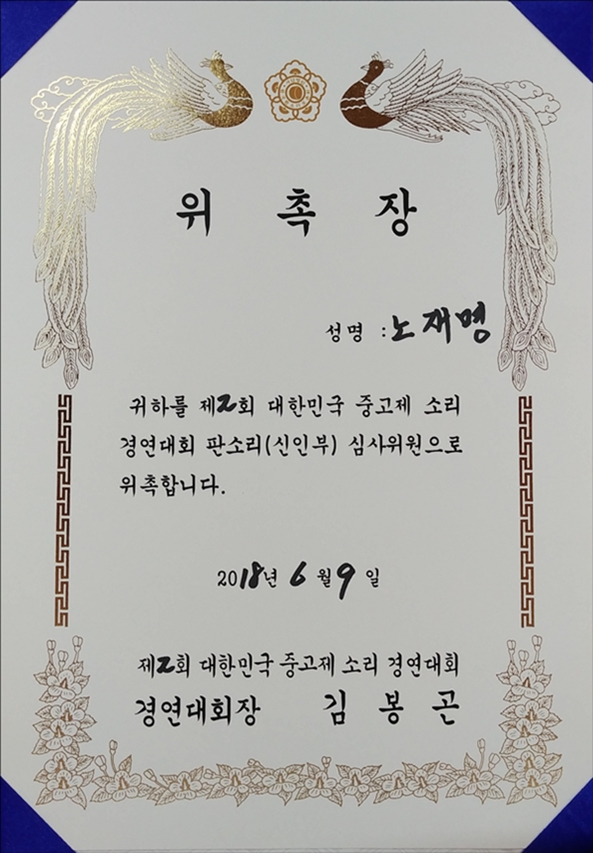 위 촉 장
성명 : 노재명
귀하를 제2회 대한민국 중고제 소리
경연대회 판소리(신인부) 심사위원으로
위촉합니다.
2018년 6월 9일
제2회 대한민국 중고제 소리 경연대회
경연대회장 김 봉 곤